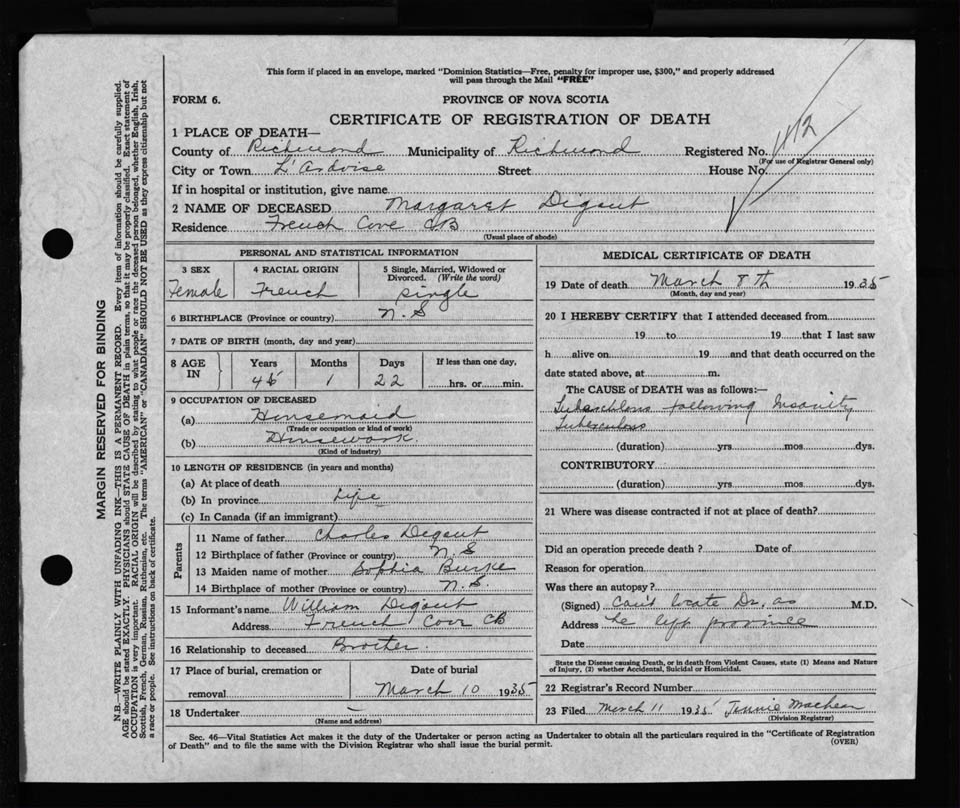 This form if placed in an envelope, marked "Dominion Statistics—Free, penalty for improper use, $300," and properly addressed
will pass through the Mail "FREE"
FORM 6.
PROVINCE OF NOVA SCOTIA
CERTIFICATE OF REGISTRATION OF DEATH
1 PLACE OF DEATH—
County of Richmond Municipality of Richmond Registered No. 112
(For use of Registrar General only)
City or Town L'Ardoise Street House No.
If in hospital or institution, give name
2 NAME OF DECEASED Margaret Digout
Residence French Cove CB
(Usual place of abode)
PERSONAL AND STATISTICAL INFORMATION
3 SEX 4 RACIAL ORIGIN 5 Single, Married, Widowed or
Divorced. (Write the word)
Female French single
6 BIRTHPLACE (Province or country) N.S
7 DATE OF BIRTH (month, day and year)
8 AGE IN Years Months Days If less than one day,
45 1 22 hrs. or min.
9 OCCUPATION OF DECEASED
(a) Housemaid
(Trade or occupation or kind of work)
(b) Housework.
(Kind of industry)
10 LENGTH OF RESIDENCE (in years and months)
(a) At place of death
(b) In province Life
(c) In Canada (if an immigrant)
Parents
11 Name of father Charles Digout
12 Birthplace of father (Province or country) N.S
13 Maiden name of mother Sophia Burke
14 Birthplace of mother (Province or country) N.S.
15 Informant's name William Digout
Address French Cove CB
16 Relationship to deceased Brother
17 Place of burial, cremation or Date of burial
removal March 10 1935
18 Undertaker —
(Name and address)
MEDICAL CERTIFICATE OF DEATH
19 Date of death March 8th 1935
(Month, day and year)
20 I HEREBY CERTIFY that I attended deceased from
19 to 19 that I last saw
h alive on 19 and that death occurred on the
date stated above, at m.
The CAUSE of DEATH was as follows:—
following Insanity
Tuberculous
(duration) yrs. mos. dys.
CONTRIBUTORY
(duration) yrs. mos. dys.
21 Where was disease contracted if not at place of death?
Did an operation precede death ? Date of
Reason for operation
Was there an autopsy?
(Signed) Can't locate Dr. as M.D.
Address he left province
Date
State the Disease causing Death, or in death from Violent Causes, state (1) Means and Nature
of Injury, (2) whether Accidental, Suicidal or Homicidal.
22 Registrar's Record Number
23 Filed March 11 1935 Jennie
(Division Registrar)
Sec. 46—Vital Statistics Act makes it the duty of the Undertaker or person acting as Undertaker to obtain all the particulars required in the "Certificate of Registration
of Death" and to file the same with the Division Registrar who shall issue the burial permit.
(OVER)
MARGIN RESERVED FOR BINDING
N.B.—WRITE PLAINLY WITH UNFADING INK—THIS IS A PERMANENT RECORD. Every item of information should be carefully supplied.
AGE should be stated EXACTLY. PHYSICIANS should STATE CAUSE OF DEATH in plain terms, so that it may be properly classified. Exact statement of
OCCUPATION is very important. RACIAL ORIGIN will be described by stating to what people or race the deceased person belonged, whether English, Irish,
Scottish, French, German, Russian, Ruthenian, etc. The terms "AMERICAN" or "CANADIAN" SHOULD NOT BE USED as they express citizenship but not
a race or people. See instructions on back of certificate.